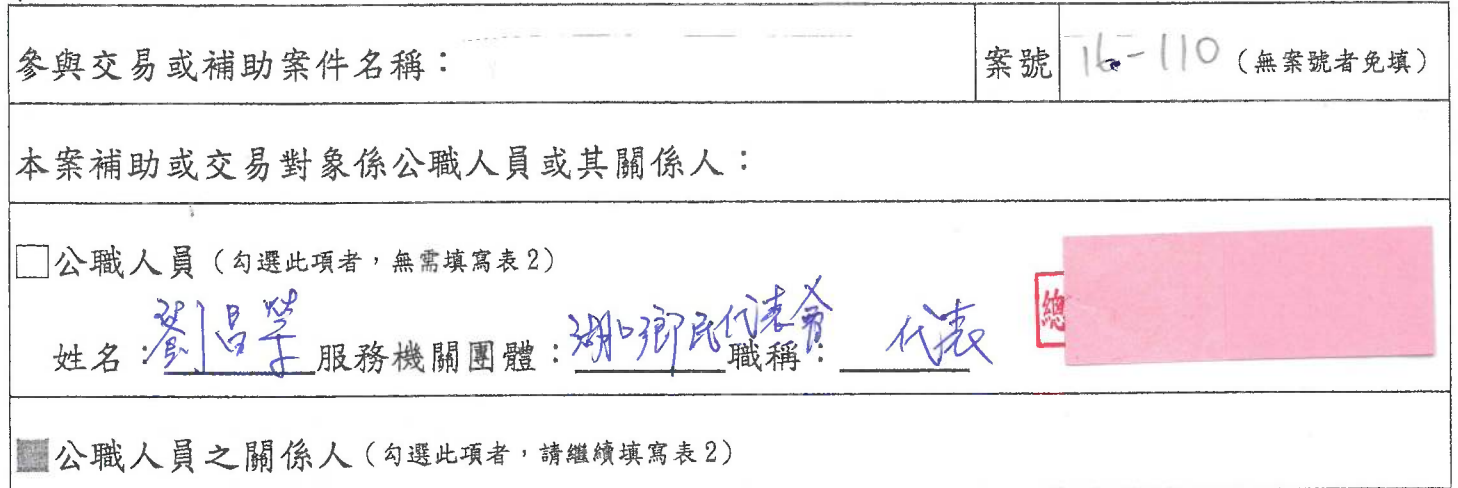 參與交易或補助案件名稱： 案號 16-110（無案號者免填）
本案補助或交易對象係公職人員或其關係人：
□公職人員（勾選此項者，無需填寫表2）
姓名：劉昌榮 服務機關團體：湖口鄉民代表會 職稱： 代表
總
■公職人員之關係人（勾選此項者，請繼續填寫表2）